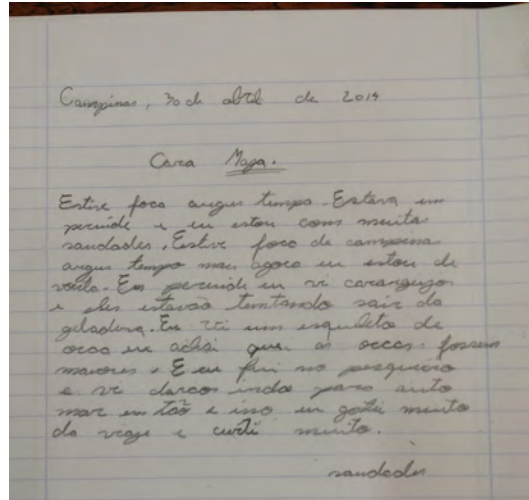 Campinas, 30 de abril de 2014
Cara Maga.
Estive foca augus tempo. Estava em
peruíde e eu estou com muita
saudades. Estive foco de campina
augus tempo mas agora eu estou de
volta. Em peruíde eu vi caranguijo
e eles estavão tentando sair da
geladera. Eu vi um esqueleto de
orca eu achei que as orcas fossem
maiores. E eu fui no pesqueiro
e vi barcos indo para auto
mar em tão e isso eu gotei muito
da viage e curti muito.
saudades